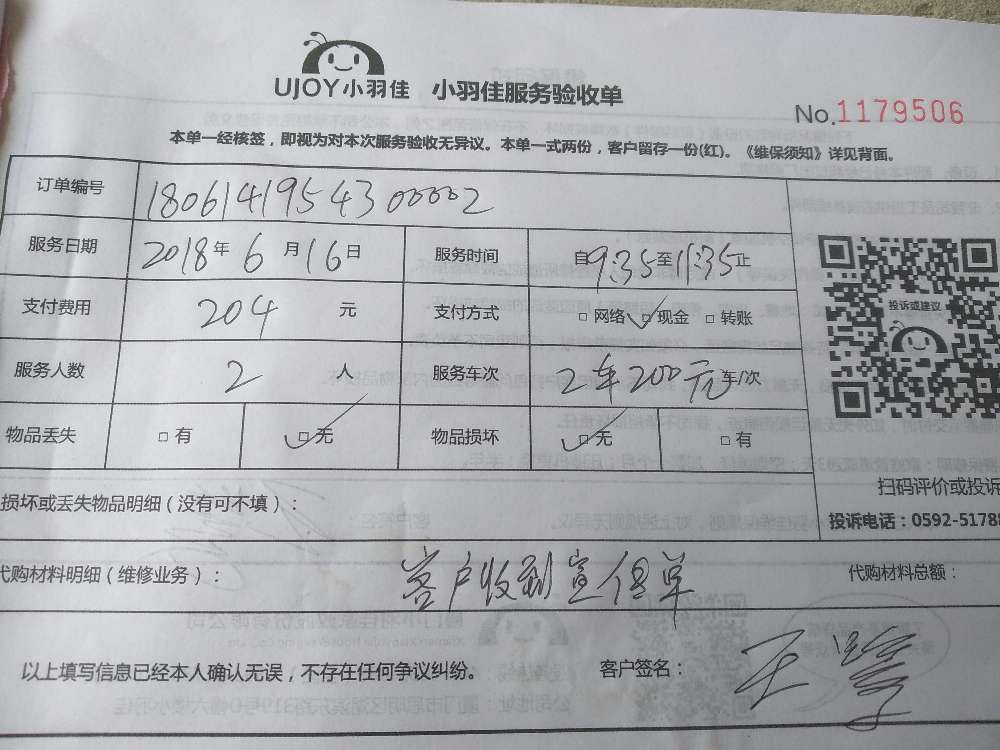 UJOY小羽佳 小羽佳服务验收单
No.1179506
本单一经核签，即视为对本次服务验收无异议。本单一式两份，客户留存一份(红)。《维保须知》详见背面。
订单编号 1806141954300002
服务日期 2018年6月16日 服务时间 自9:35至11:35止
支付费用 204元 支付方式 □网络 ☑现金 □转账
投诉或建议
服务人数 2人 服务车次 2车200元车/次
物品丢失 □有 ☑无 物品损坏 ☑无 □有
扫码评价或投诉
损坏或丢失物品明细（没有可不填）：
投诉电话：0592-5178
代购材料明细（维修业务）： 客户收到宣传单 代购材料总额：
以上填写信息已经本人确认无误，不存在任何争议纠纷。 客户签名：王